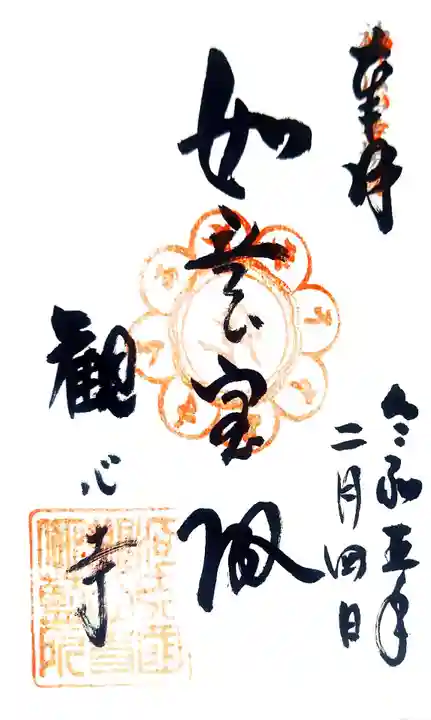 奉拝
令和五年
二月四日
如意宝殿
観心寺